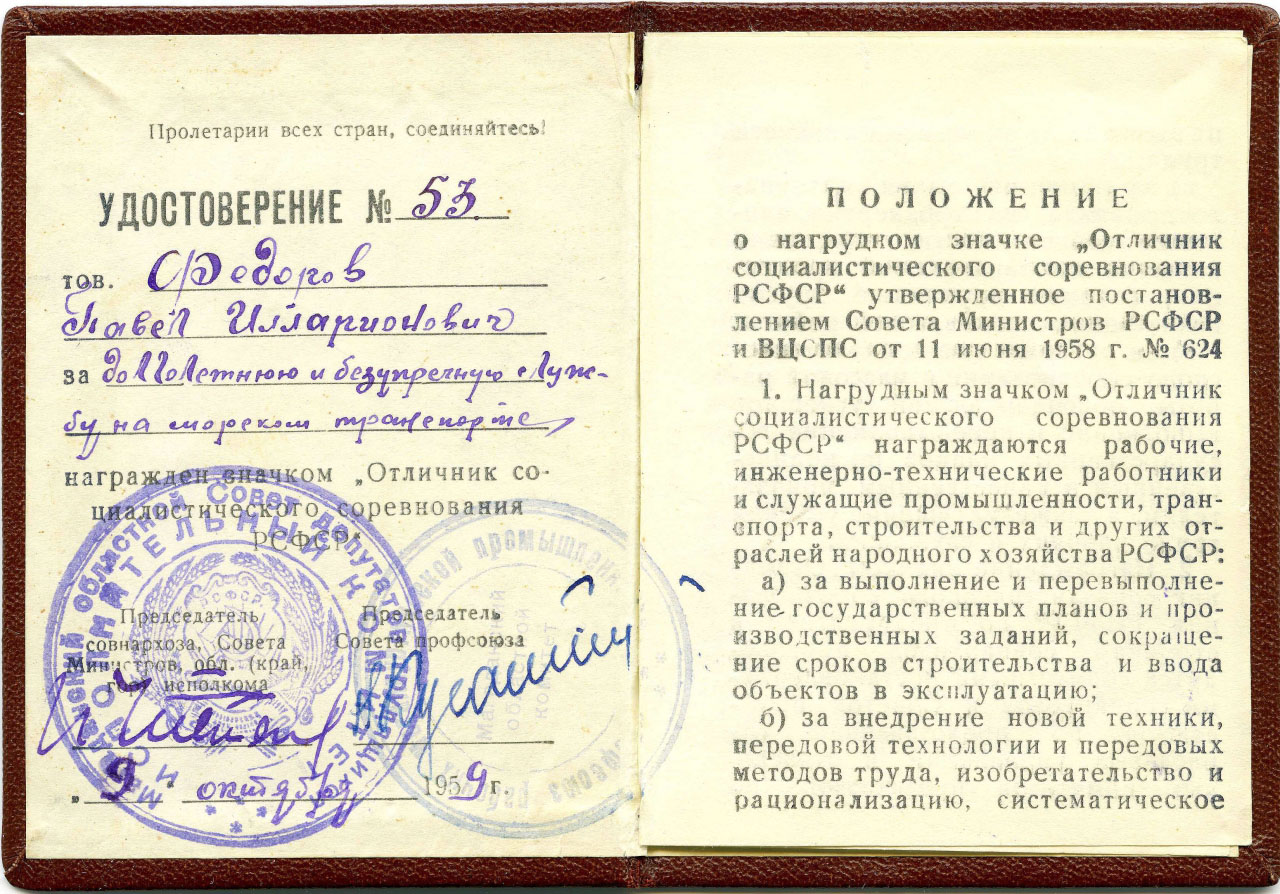 Пролетарии всех стран, соединяйтесь!
УДОСТОВЕРЕНИЕ № 53
тов. Федоров
Павел Илларионович
за долголетнюю и безупречную служ-
бу на морском транспорте,
награжден значком „Отличник со-
циалистического соревнования
РСФСР“
Председатель
совнархоза, Совета
Министров, обл. (край,
гор) исполкома
Председатель
Совета профсоюза
„9 октября 1959 г.
областной Совет депутатов трудящихся
ИСПОЛНИТЕЛЬНЫЙ КОМИТЕТ
РСФСР
ПОЛОЖЕНИЕ
о нагрудном значке „Отличник
социалистического соревнования
РСФСР“ утвержденное постанов-
лением Совета Министров РСФСР
и ВЦСПС от 11 июня 1958 г. № 624
1. Нагрудным значком „Отличник
социалистического соревнования
РСФСР“ награждаются рабочие,
инженерно-технические работники
и служащие промышленности, тран-
спорта, строительства и других от-
раслей народного хозяйства РСФСР:
а) за выполнение и перевыполне-
ние государственных планов и про-
изводственных заданий, сокраще-
ние сроков строительства и ввода
объектов в эксплуатацию;
б) за внедрение новой техники,
передовой технологии и передовых
методов труда, изобретательство и
рационализацию, систематическое